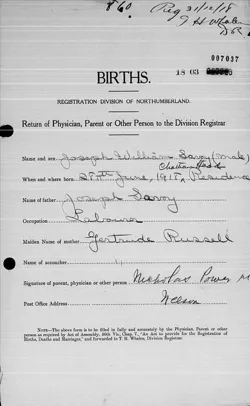 860
Reg 31/12/18
007037
18 03
BIRTHS.
REGISTRATION DIVISION OF NORTHUMBERLAND.
Return of Physician, Parent or Other Person to the Division Registrar
Name and sex, Joseph William Savoy (male)
When and where born, 28th June, 1918, Residence
Name of father, Joseph Savoy
Occupation Labourer
Maiden Name of mother, Gertrude Russell
Name of accoucheur,
Signature of parent, physician or other person, Nicholas Power
Post Office Address, Nelson
NOTE.—The above form is to be filled in fully and accurately by the Physician, Parent or other
person as required by Act of Assembly, 50th Vic., Chap. V., "An Act to provide for the Registration of
Births, Deaths and Marriages," and forwarded to T. H. Whalen, Division Registrar.